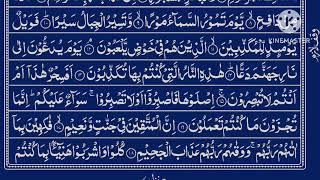 دَافِعٍ ۙ يَّوۡمَ تَمُوۡرُ السَّمَآءُ مَوۡرًا ۙ وَّتَسِيۡرُ الۡجِبَالُ سَيۡرًا ؕ فَوَيۡلٌ
يَّوۡمَئِذٍ لِّلۡمُكَذِّبِيۡنَ ۙ الَّذِيۡنَ هُمۡ فِىۡ خَوۡضٍ يَّلۡعَبُوۡنَ ۘ يَوۡمَ يُدَعُّوۡنَ اِلٰى
نَارِ جَهَنَّمَ دَعًّا ؕ هٰذِهِ النَّارُ الَّتِىۡ كُنۡتُمۡ بِهَا تُكَذِّبُوۡنَ اَفَسِحۡرٌ هٰذَاۤ اَمۡ
اَنۡتُمۡ لَا تُبۡصِرُوۡنَ ۚ اِصۡلَوۡهَا فَاصۡبِرُوۡۤا اَوۡ لَا تَصۡبِرُوۡا ۚ سَوَآءٌ عَلَيۡكُمۡ ؕ اِنَّمَا
تُجۡزَوۡنَ مَا كُنۡتُمۡ تَعۡمَلُوۡنَ اِنَّ الۡمُتَّقِيۡنَ فِىۡ جَنّٰتٍ وَّنَعِيۡمٍ ۙ فٰكِهِيۡنَ بِمَاۤ
اٰتٰٮهُمۡ رَبُّهُمۡ ۚ وَوَقٰٮهُمۡ رَبُّهُمۡ عَذَابَ الۡجَحِيۡمِ كُلُوۡا وَاشۡرَبُوۡا هَنِيۡٓــًٔا ۢ بِمَا كُنۡتُمۡ
KINEMASTER